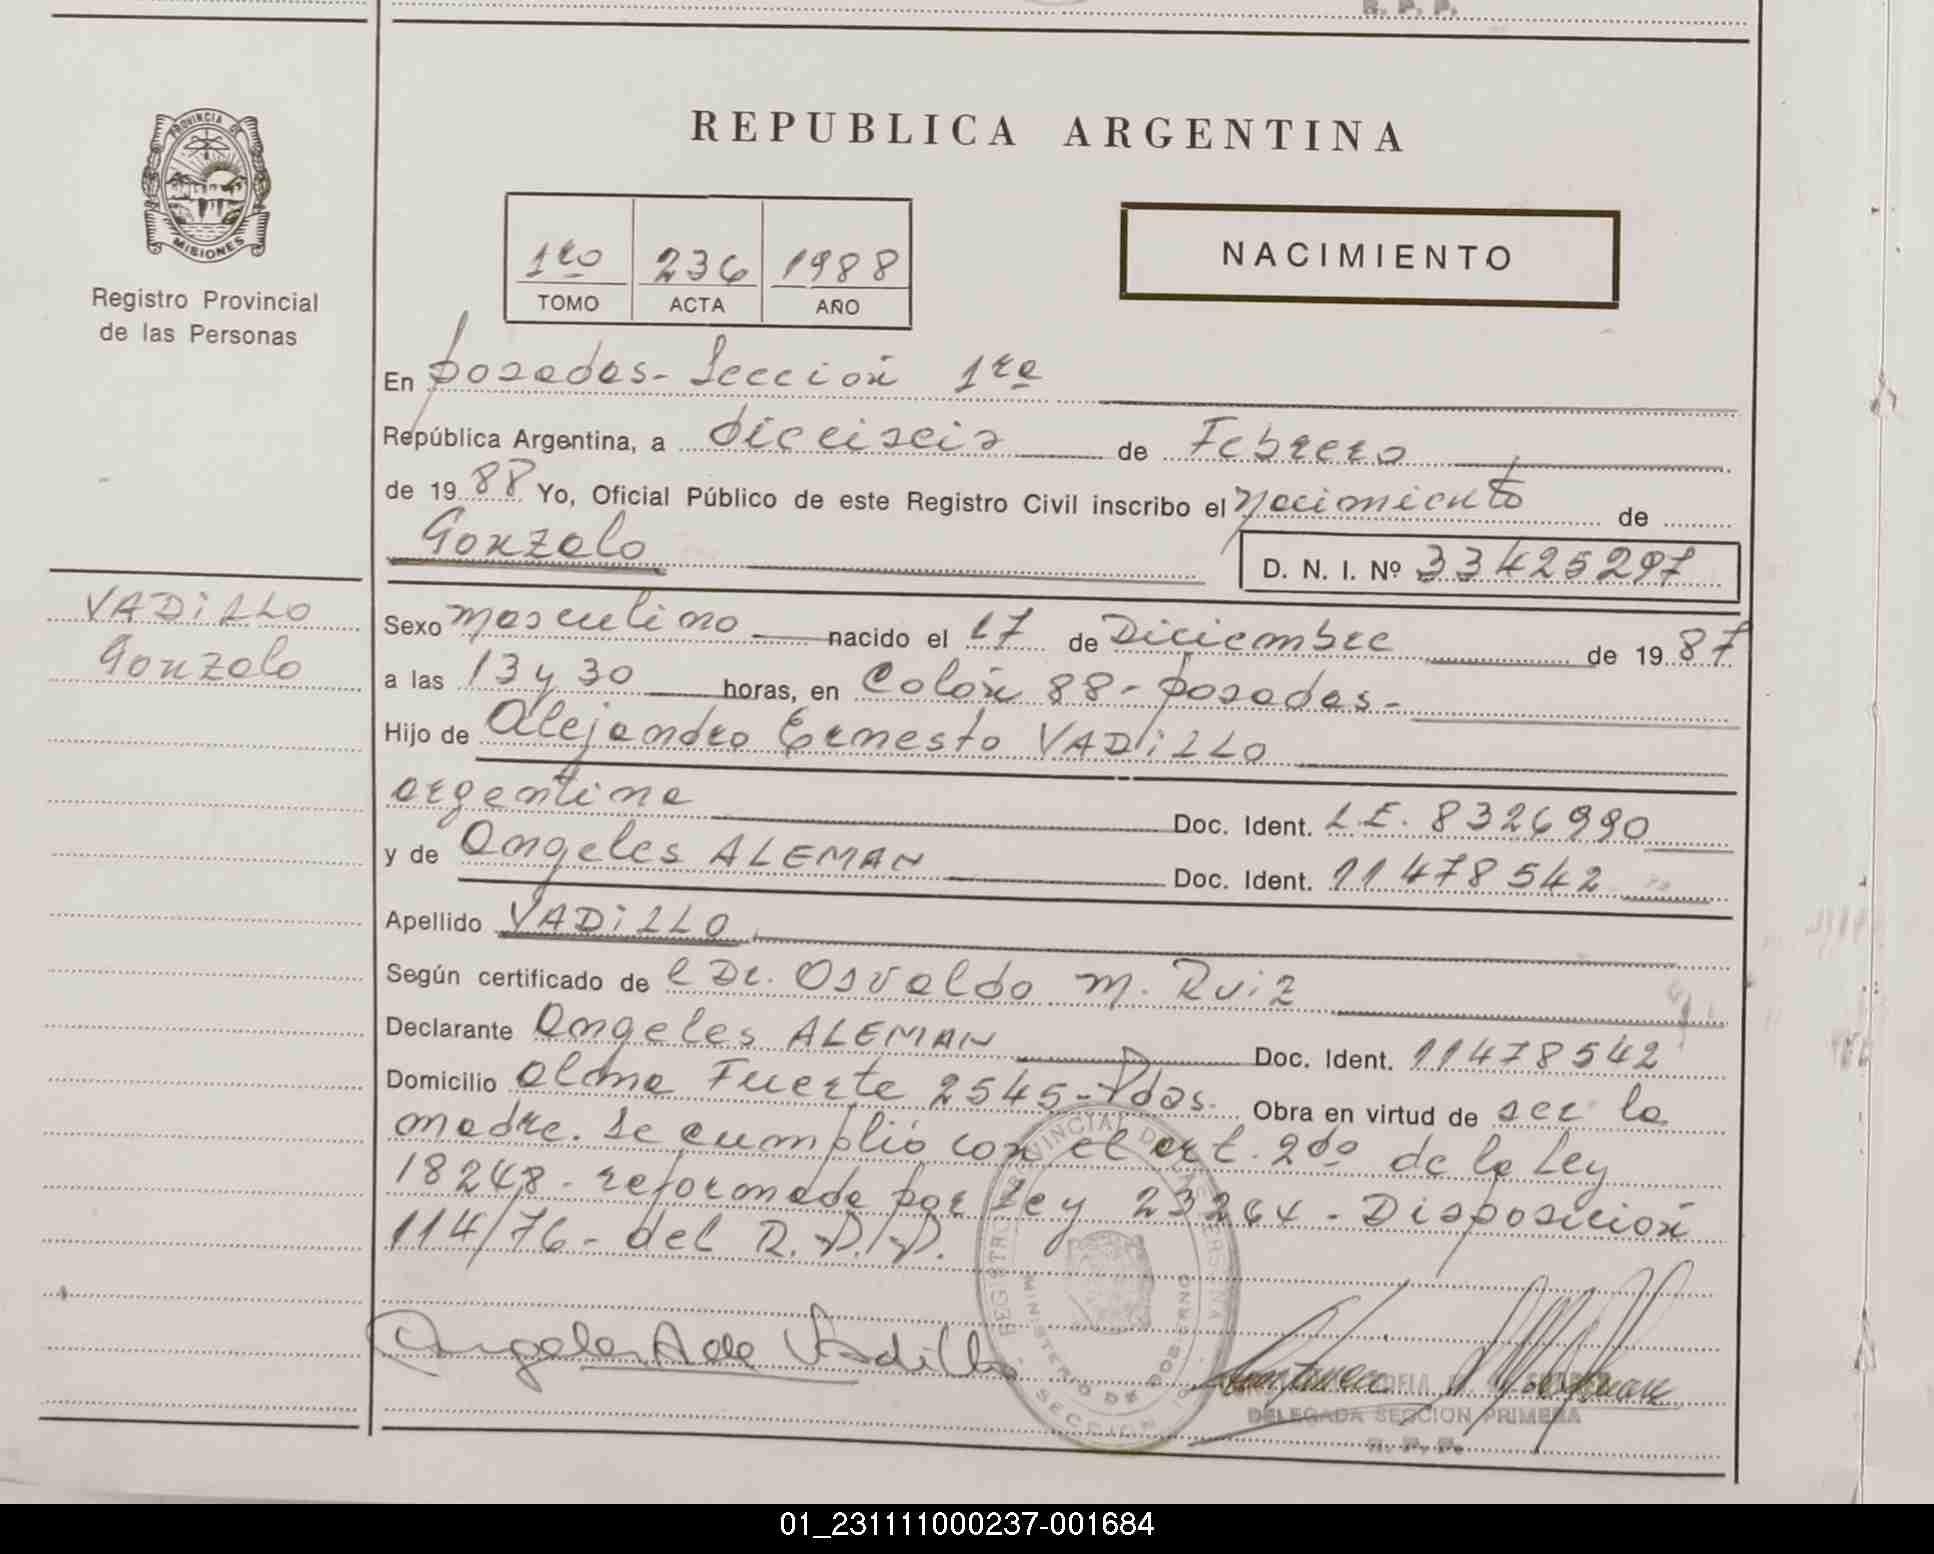 R. P. P.
PROVINCIA DE
MISIONES
Registro Provincial
de las Personas
REPUBLICA ARGENTINA
1ro 236 1988
TOMO ACTA AÑO
NACIMIENTO
En Posadas - Sección 1ra
República Argentina, a dieciseis de Febrero
de 1988 Yo, Oficial Público de este Registro Civil inscribo el Nacimiento de
Gonzalo
D. N. I. Nº 33425297
VADiLLO
Gonzalo
Sexo masculino nacido el 17 de Diciembre de 1987
a las 13 y 30 horas, en Colón 88 - Posadas -
Hijo de Alejandro Ernesto VADiLLO
argentina Doc. Ident. L.E. 8326990
y de Angeles ALEMAN Doc. Ident. 11478542
Apellido VADiLLO
Según certificado de l Dr. Osvaldo M. Ruiz
Declarante Angeles ALEMAN Doc. Ident. 11478542
Domicilio Alma Fuerte 2545 - Pdas. Obra en virtud de ser la
madre. Se cumplió con el art. 2do de la Ley
18248 - reformada por Ley 23264 - Disposición
114/76 - del R.P.P.
REGISTRO PROVINCIAL DE LAS PERSONAS
MINISTERIO DE GOBIERNO
SECCION 1ª
Angeles A de Vadillo
DELEGADA SECCION PRIMERA
R. P. P.
01_231111000237-001684